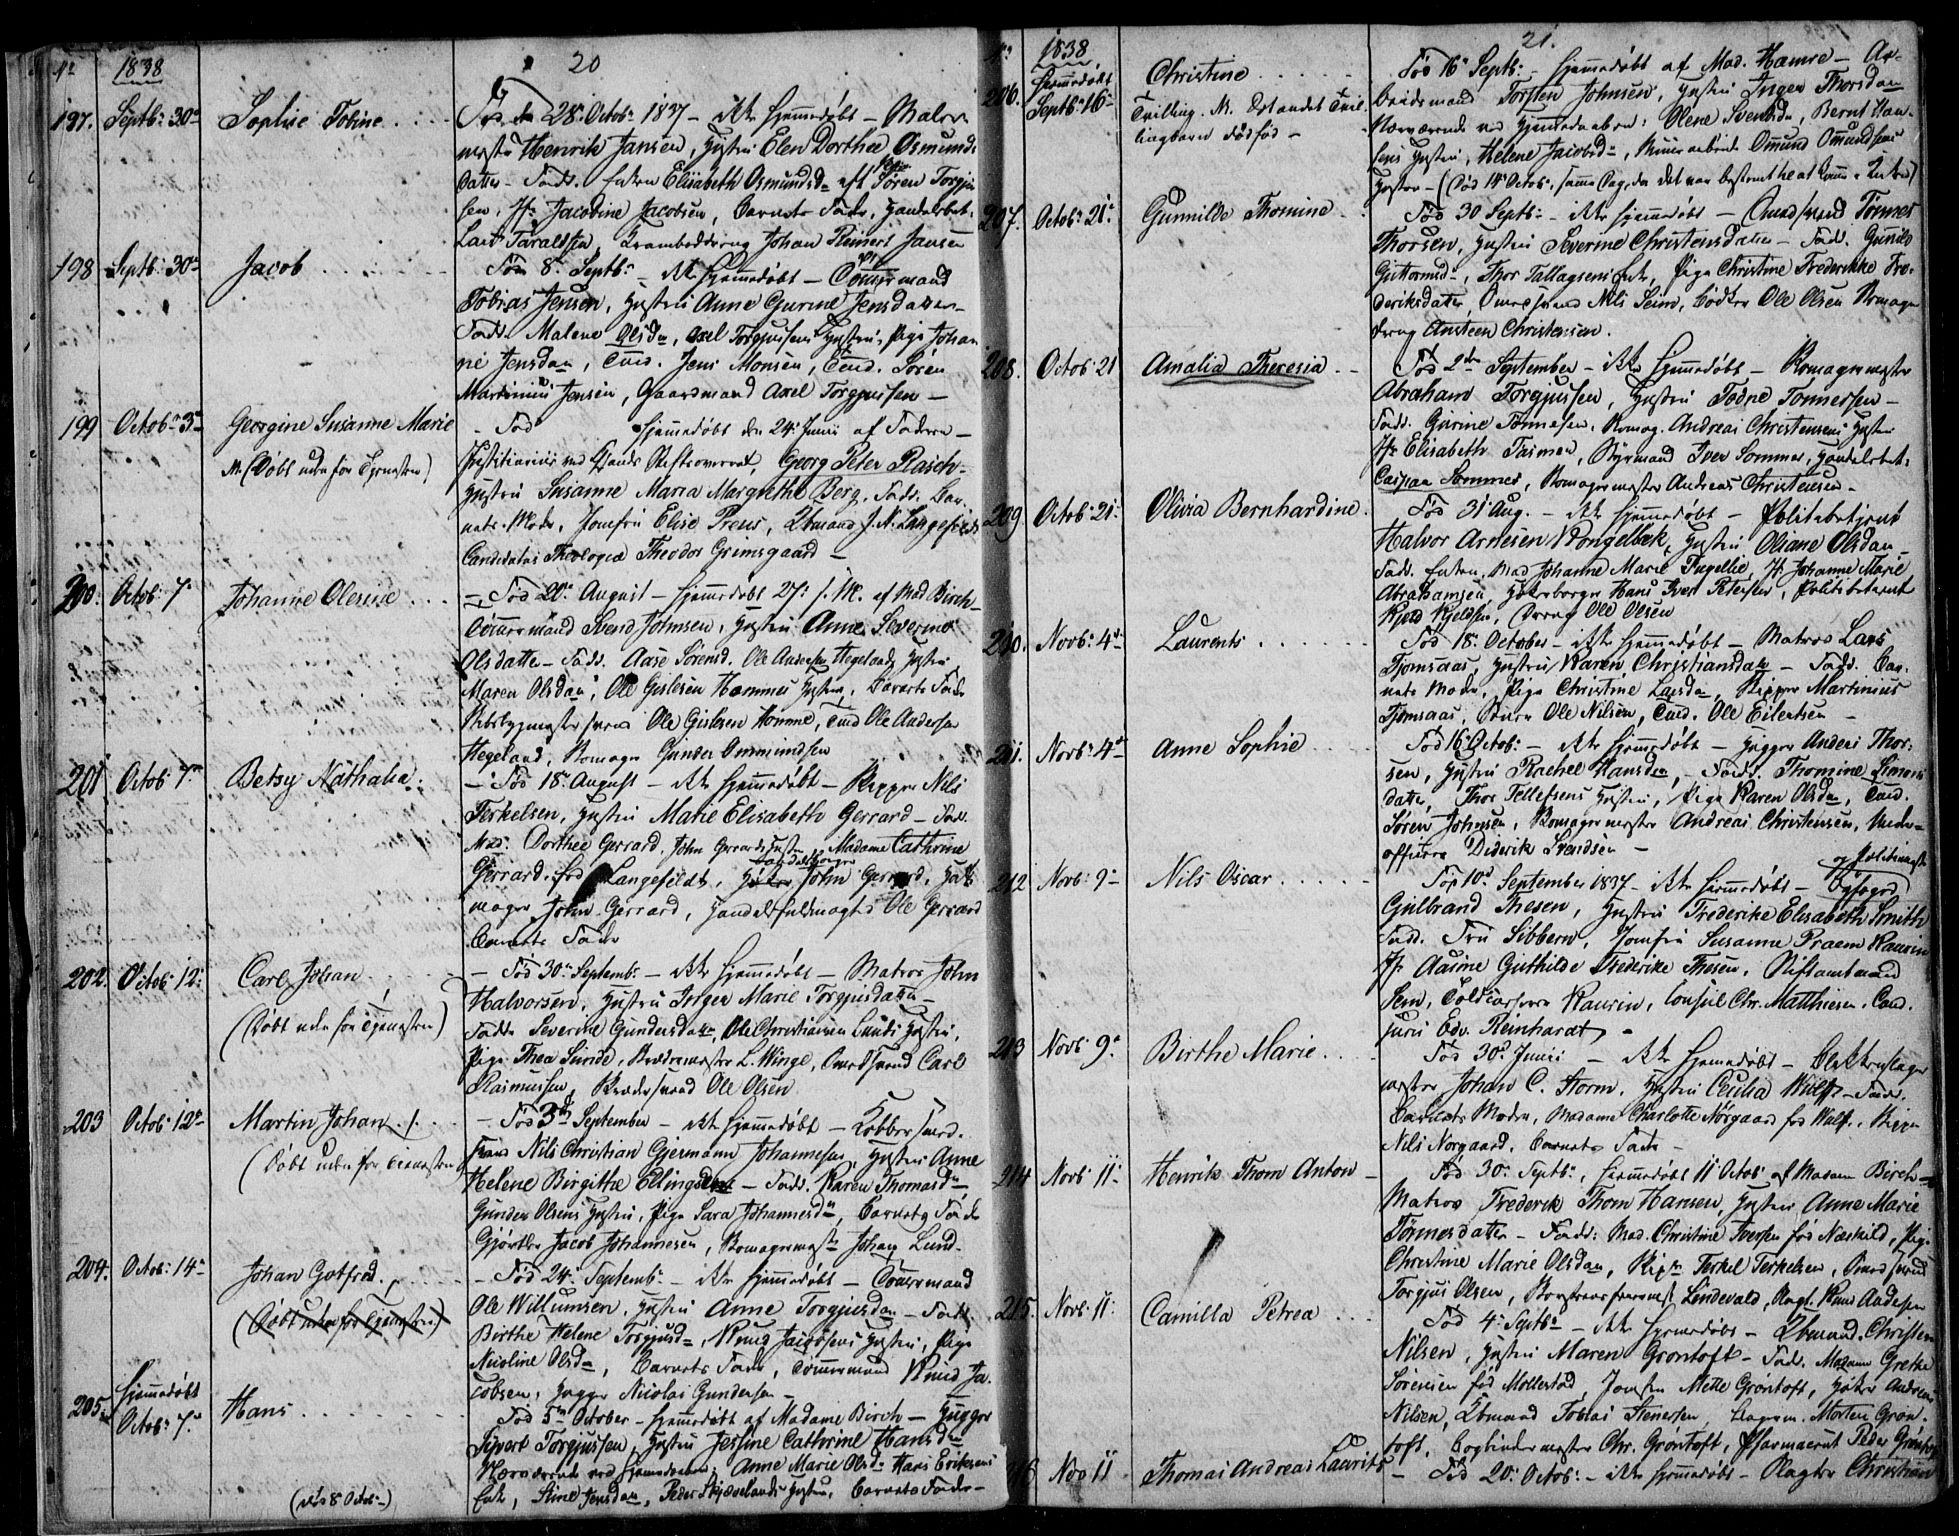 20
No 1838
197. Septbr 30te Sophie Tobine
Fød den 28de Octobr 1837 – ikke hjemmedøbt – Maler
mester Henrik Jansen, Hustru Elen Dorthea Osmunds
datter – Fadd. Enken Elisabeth Osmundsdn eft Søren Torgju
sen, Jfr Jacobine Jacobsen, Barnets Fader, Handelsbet.
Lars Taraldsen, Krambоddreng Johan Reinert Jansen
198 Septbr 30te Jacob
Fød 8de Septbr – ikke hjemmedøbt – Tømmermand
Tobias Jensen, Hustru Anne Gurine Jensdatter –
Fadd. Malene Olsdn, Axel Torgjussens Hustru, Pige Johan
ne Jensdn, Tmd. Jens Monsen, Tmd. Søren
Martinius Jensen, Gaardmand Axel Torgjussen –
199 Octobr 3die Georgine Susanne Marie
(Døbt uden for Tjenesten)
Fød hjemmedøbt den 24de Junii af Faderen –
Justitiarius ved Christiansands Stiftsoverret, Georg Peter Rasch –
Hustru Susanne Maria Margrethe Berg. Fadd. Bar-
nets Moder, Jomfru Elise Preus, Kbmand J. N. Langefeldt
Candidatus Theologiæ Theodor Grimsgaard –
200. Octobr 7de Johanne Olesine
– Fød 20de August – hjemmedøbt 27de s. M. af Mad. Birch –
Tømmermand Svend Johnsen, Hustru Anne Severine
Olsdatter – Fadd. Aase Sørensd. Ole Andersen Hegelands Hustru
Maren Olsdan, Ole Gislesen Hommes Hustru, Barnets Fader
Skibsbygmestersvend Ole Gislesen Homme, Tmd Ole Andersen
Hegeland, Skomager Gunder Ommundsen
201 Octobr 7de Betsy Nathalia
– Fød 18de August – ikke hjemmedøbt – Skipper Nils
Terkelsen, Hustru Marie Elisabeth Gerrard – Fadd.
Mad. Dorthea Gerrard, John Gerrards Hustru, Madame Cathrine
Gerrard, fød Langefeldt, Handelsborger John Gerrard, Hatte-
mager John Gerrard, Handelsfuldmægtig Ole Gerrard
Barnets Fader
202. Octobr 12te Carl Johan
(Døbt uden for Tjenesten)
– Fød 30te Septembr – ikke hjemmedøbt – Matros John
Halvorsen, Hustru Inger Marie Torgjusdatter –
Fadd. Severine Gundersdatter, Ole Christiansen Lunds Hustru,
Pige Thea Sunde, Snedkermester L. Winge, Smedsvend Carl
Rasmussen, Snedkersvend Ole Olsen
203 Octobr 12te Martin Johan
(Døbt uden for Tjenesten)
– Fød 3de September – ikke hjemmedøbt – Kobbersmed-
svend Nils Christian Gjermann Johannesen, Hustru Anne
Helene Birgithe Ellingsdtr – Fadd. Karen Thomasdn
Gunder Olsens Hustru, Pige Sara Johannesdn, Barnets Fader
Gjørtler Jacob Johannesen, Skomagermestr Johan Lund.
204. Octobr 14de Johan Gotfred
(Døbt uden for Tjenesten)
– Fød 24de Septembr – ikke hjemmedøbt – Tømmermand
Ole Willumsen, Hustru Anne Torgjusdan – Fadd.
Birthe Helene Torgjusdn, Knud Jacobsens Hustru, Pige
Nicoline Olsdn, Barnets Fader, Tømmermand Knud Ja-
cobsen, Hugger Nicolai Gundersen –
205. hjemmedøbt Octobr 7de Hans
(død 8de Octobr)
Fød 5te October – hjemmedøbt af Madame Birch – Hugger
Sivert Torgjussen, Hustru Jessine Cathrine Hansdn
Nærværende ved hjemmedaaben: Anne Marie Olsdn Hans Eriksens
Enke, Stine Jensdan, Peder Skjævelands Hustru, Barnets Fader –
21.
No 1838
206. hjemmedøbt Septbr 16de Christine
Tvilling. NB. Det andet Tvil-
lingbarn dødfød –
Fød 16de Septbr – hjemmedøbt af Mad. Hamre – Ar-
beidsmand Torsten Johnsen, Hustru Inger Thorsdan
Nærværende ved hjemmedaaben: Olene Svendsdn, Bernt Han-
sens Hustru, Helene Jacobsdn, Omund Omundsens
Hustru – (Død 14de Octobr, samme Dag, da det var bestemt til at komme i Kirke)
207. Octobr 21de Gunnilde Thomine
Fød 30 Septbr – ikke hjemmedøbt – Smedsvend Tønnes
Thorsen, Hustru Severine Christensdatter – Fadd. Gunild
Guttormsdn, Thor Tallagsens Enke, Pige Christine Frederikke Fre-
deriksdatter, Smedsvend Nils Seim, Bødker Ole Olsen Skomager
dreng Ansteen Christensen.
208. Octobr 21 Amalia Theresia
Fød 2den September – ikke hjemmedøbt – Skomagermester
Abraham Torgjussen, Hustru Todne Tønnessen –
Fadd. Gurine Tønnesen, Skomag. Andreas Christensens Hustru
Jfr Elisabeth Tasmer, Styrmand Iver Sommer, Handelsbet.
Caspar Sommer, Skomagermester Andreas Christensen –
209 Octobr 21de Olivia Bernhardine
Fød 31te Aug. – ikke hjemmedøbt – Politibetjent
Halvor Arnesen Kongelbek, Hustru Oliane Olsdan –
Fadd. Enken Mad Johanne Marie Ingellie, Jfr Johanne Marie
Abrahamsen, Høkerborger Hans Iver Petersen, Politibetjent
Kjeld Kjeldsen, Dreng Ole Olsen
210. Novbr 4de Laurents
Fød 18de October – ikke hjemmedøbt – Matros Lars
Tjomsaas, Hustru Karen Christiansdatter – Fadd. Bar-
nets Moder, Pige Christine Larsdn, Skipper Martinius
Tjomsaas, Ole Nilsen, Tmd. Ole Eilertsen –
211. Novbr 4de Anne Sophie
Fød 16 Octobr – ikke hjemmedøbt – Hugger Anders Thor-
sen, Hustru Rachel Hansdn, – Fadd. Thomine Simons
datter, Thor Tellefsens Hustru, Pige Karen Olsdn, Tmd.
Søren Johnsen, Skomagermester Andreas Christensen, Under-
officer Diderik Svendsen –
212 Novbr 9de Nils Oscar
Fød 10de September 1837 – ikke hjemmedøbt – Byfoged og Politimester
Gulbrand Thesen, Hustru Frederike Elisabeth Smith
Fadd. Fru Sibbern, Jomfru Susanne Praem Kaurin
Jfr Aasine Guthilde Frederike Thesen, Stiftamtmand
Sem, Toldkasserer Kaurin, Consul Chr. Matthiesen, Cand.
juris Edv. Reinhardt –
213 Novbr 9de Birthe Marie
Fød 30te Junii – ikke hjemmedøbt – Blikkenslager
mester Johan C. Storm, Hustru Cecilia Wulff – Fadd.
Barnets Moder, Madame Charlotte Nørgaard fød Wulf, Skipper
Nils Nørgaard, Barnets Fader –
214 Novbr 11te Henrik Thom Anton
Fød 30te Septbr, hjemmedøbt 11te Octobr af Madam Birch –
Matros Frederik Thom Hansen, Hustru Anne Marie
Tønnesdatter – Fadd: Mad. Christine Iversen fød Næskild, Pige
Christine Marie Olsdan, Skipr Terkel Terkelsen, Smedsvend
Torgjus Olsen, Lindevald, Knud Andersen
215. Novbr 11te Camilla Petrea
Fød 4de Septbr – ikke hjemmedøbt – Kbmand Christen
Nilsen, Hustru Maren Grøntoft – Fadd. Madame Grethe
Sørensen fød Møllerstad, Jomfru Mette Grøntoft, Høker Andreas
Nilsen, Kbmand Tobias Stenersen, Morten Grøn-
toft, Bogbindermester Chr. Grøntoft, Pharmaceut Peder Grøntoft
216 Nov 11 Thomas Andreas Laurits
– Fød 20de Octobr – ikke hjemmedøbt – Slagter Christian